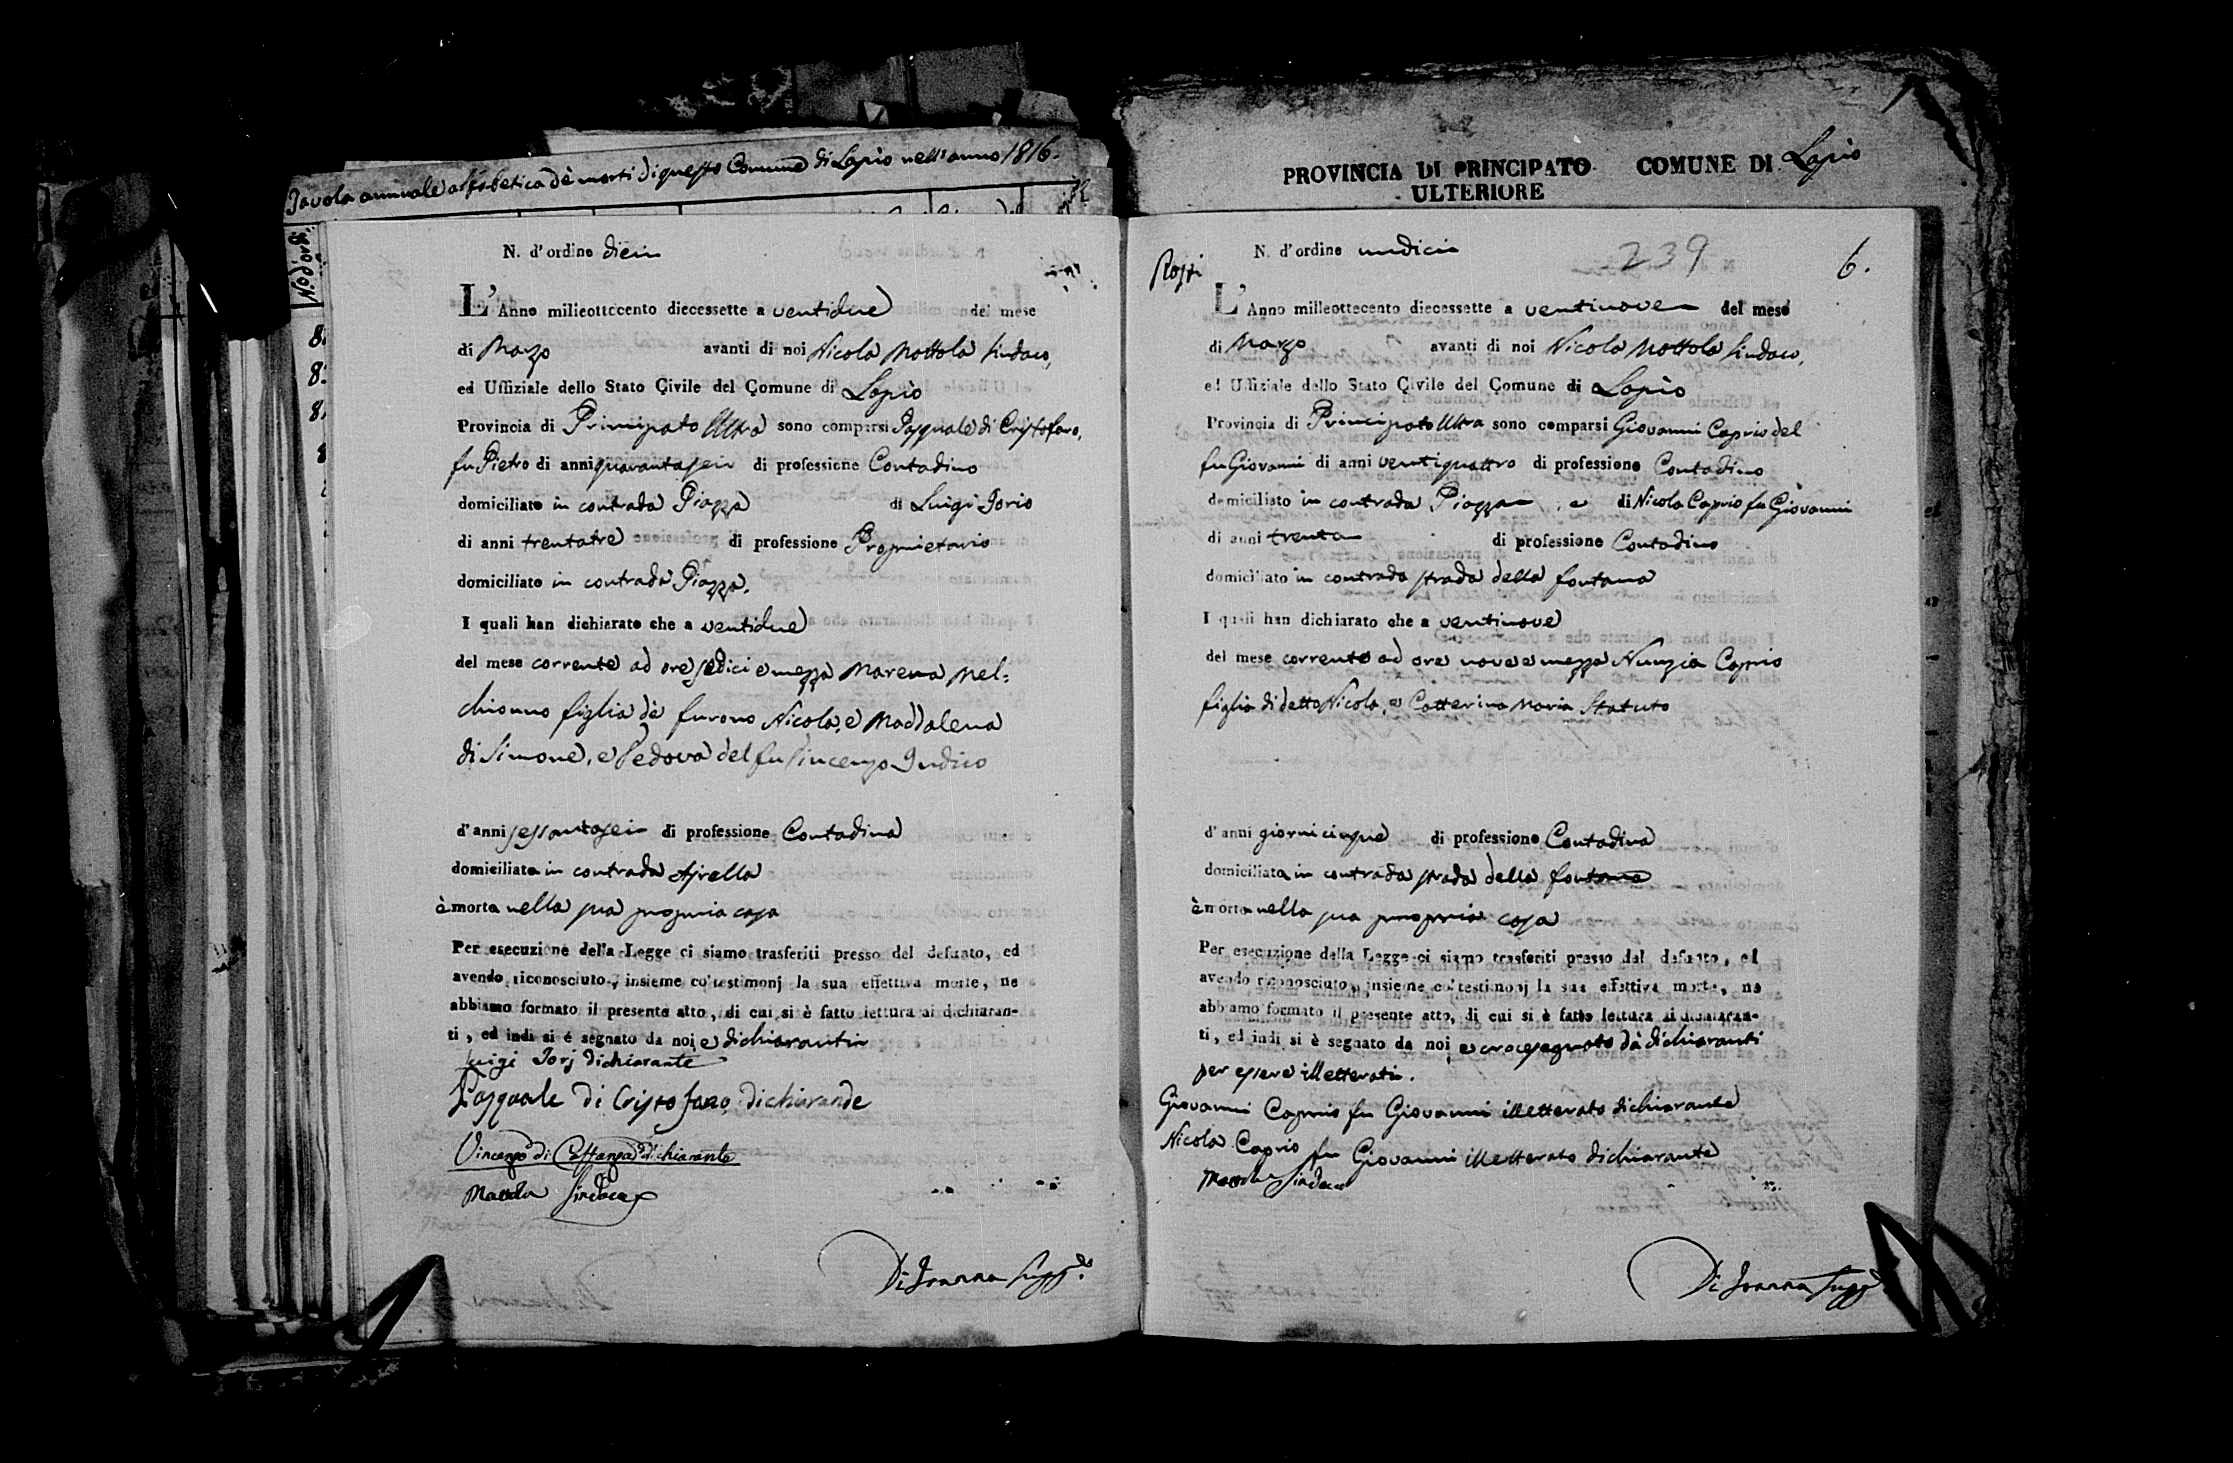 Tavola annuale alfabetica de' morti di questo Comune di Lapio nell'anno 1816.
N.o d'ord.
N. d'ordine dieci
L'Anno milleottocento diecessette a ventidue del mese
di Marzo avanti di noi Nicola Mottola Sindaco,
ed Uffiziale dello Stato Civile del Comune di Lapio
Provincia di Principato Ultra sono comparsi Pasquale di Cristofaro,
fu Pietro di anni quarantasei di professione Contadino
domiciliato in contrada Piazza di Luigi Iorio
di anni trentatre di professione Proprietario
domiciliato in contrada Piazza.
I quali han dichiarato che a ventidue
del mese corrente ad ore sedici e mezza Marena Mel=
chionno figlia dè furono Nicola, e Maddalena
di Simone, e Vedova del fu Vincenzo Indico
d'anni sessantasei di professione Contadina
domiciliata in contrada Airella
è morta nella sua propria casa
Per esecuzione della Legge ci siamo trasferiti presso del defunto, ed
avendo riconosciuto, insieme co' testimonj la sua effettiva morte, ne
abbiamo formato il presente atto, di cui si è fatto lettura ai dichiaran-
ti, ed indi si è segnato da noi e dichiaranti
Luigi Iorj dichiarante
Pasquale di Cristofaro dichiarande
Vincenzo di Costanza dichiarante
Mottola Sindaco
Di Ioanna Sugg.
PROVINCIA DI PRINCIPATO ULTERIORE COMUNE DI Lapio
N. d'ordine undici
239
6.
L'Anno milleottocento diecessette a ventinove del mese
di Marzo avanti di noi Nicola Mottola Sindaco,
ed Uffiziale dello Stato Civile del Comune di Lapio
Provincia di Principato Ultra sono comparsi Giovanni Caprio del
fu Giovanni di anni ventiquattro di professione Contadino
domiciliato in contrada Piazza, e di Nicola Caprio fu Giovanni
di anni trenta di professione Contadino
domiciliato in contrada strada della fontana
I quali han dichiarato che a ventinove
del mese corrente ad ore nove e mezza Nunzia Caprio
figlia di detto Nicola, e Catterina Maria Statuto
d'anni giorni cinque di professione Contadina
domiciliata in contrada strada della fontana
è morta nella sua propria casa
Per esecuzione della Legge ci siamo trasferiti presso del defunto, ed
avendo riconosciuto, insieme co' testimonj la sua effettiva morte, ne
abbiamo formato il presente atto, di cui si è fatto lettura ai dichiaran-
ti, ed indi si è segnato da noi, e crocesegnato dà dichiaranti
per essere illetterati.
Giovanni Caprio fu Giovanni illetterato dichiarante
Nicola Caprio fu Giovanni illetterato dichiarante
Mottola Sindaco
Di Ioanna Sugg.